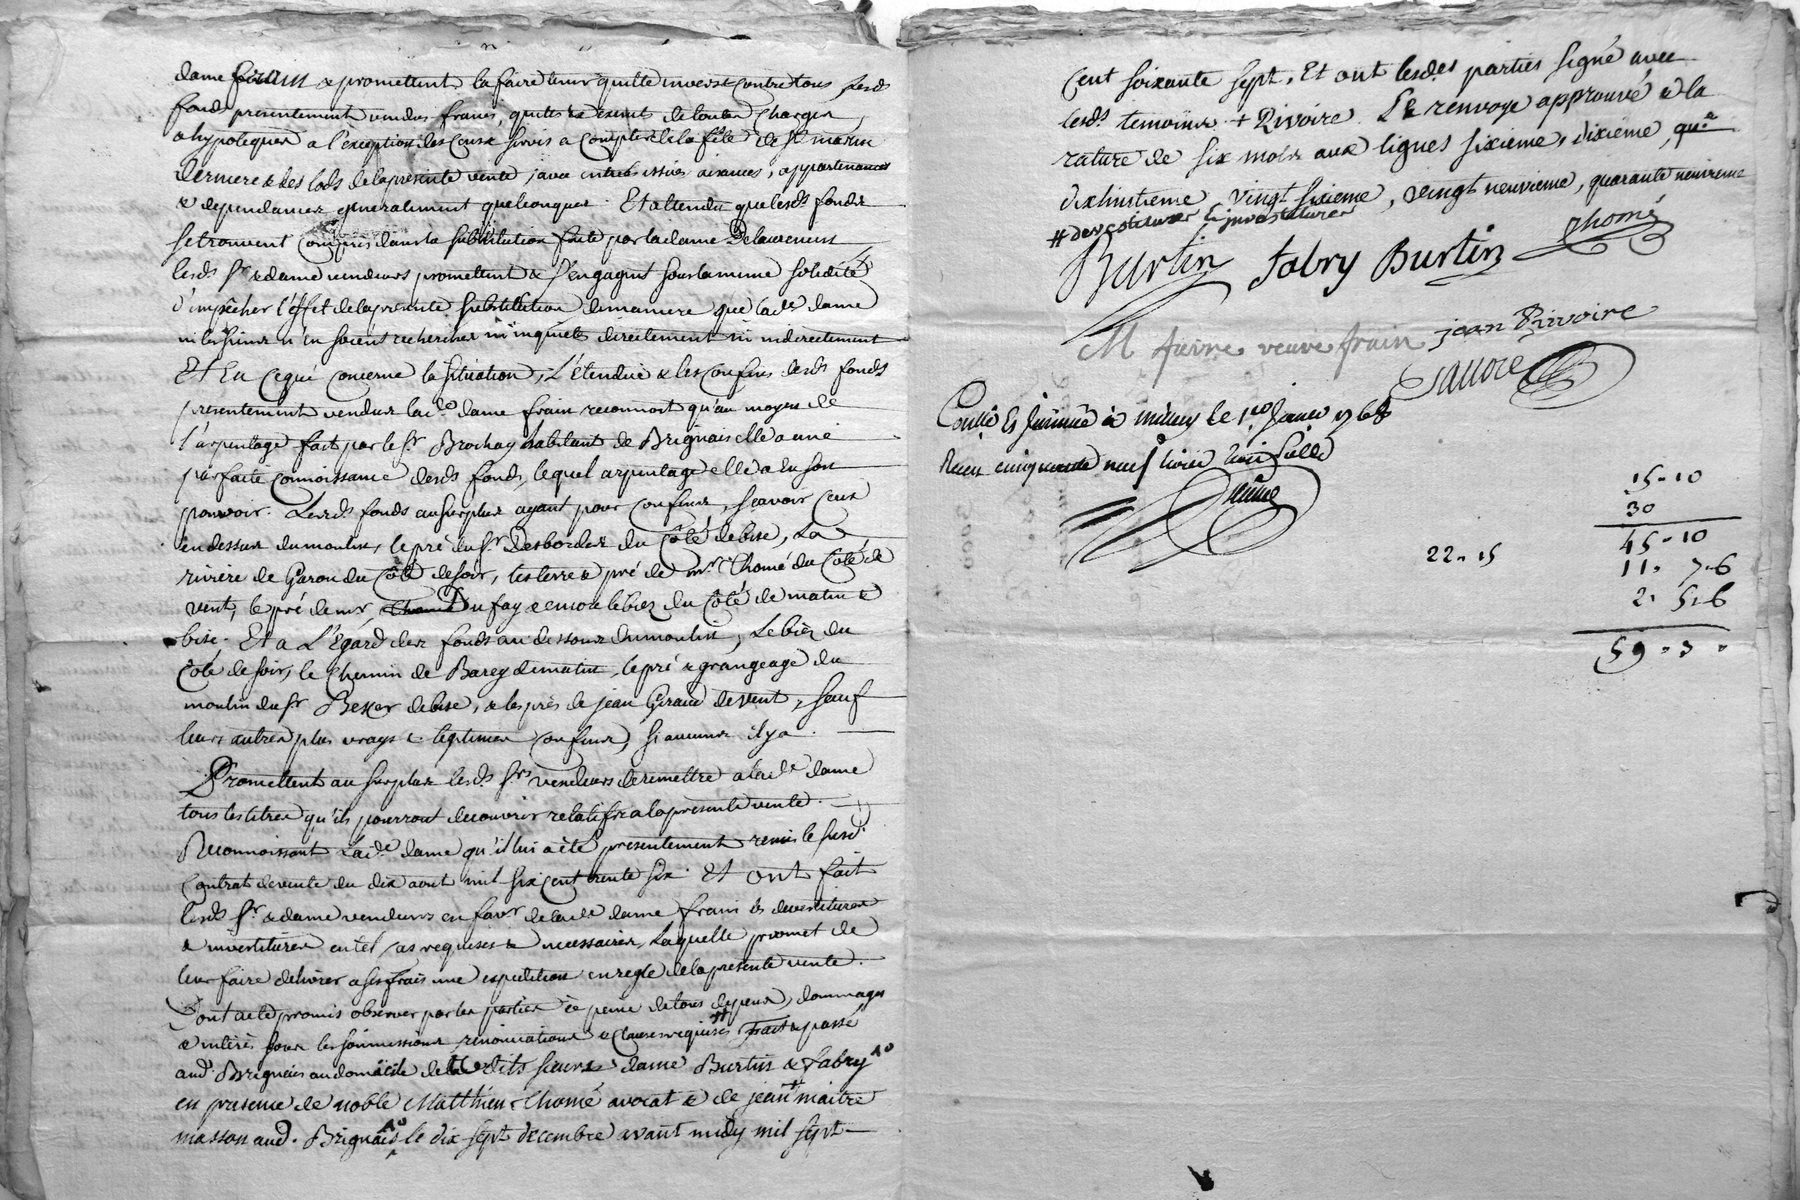 dame frain & promettent la faire tenir quitte envers & contre tous lesds
fonds presentement vendus francs, quittes & exemts de toutes charges
& hypoteques a l'exception des cens & servis a compter de la fête de st martin
derniere & des lods de la presente vente, avec entrées issües aisances, appartenances
& dependances generalement quelconques. Et attendu que lesds fonds
se trouvent compris dans la substitution faite par la dame Delaurencin
lesds sr. & dame vendeurs promettent & s'engagent sous la meme solidité
d'empêcher l'éffet de la presente substitution de maniere que lade dame
ni les siens n'en soient recherchés ni inquiétés directement ni indirectement
Et En ce qui concerne la situation, L'étenduë & les confins desds fonds
presentement vendus lade dame frain reconnoit qu'au moyen de
l'arpentage fait par le sr. Brochay habitant de Brignais elle a une
parfaite connoissance desds fonds, lequel arpentage elle a en son
pouvoir. Lesds fonds au surplus ayant pour confins, sçavoir ceux
en dessus du moulin, le pré du sr Desbordes du Côté de bise, La
riviere de Garon du Côté de soir, les terre & pré de mr. Thomé du Côté de
vent, le pré de mr, Dufay & encore le biez du Côté de matin &
bise. Et a L'égard des fonds au dessous du moulin, Le biez du
Côté de soir, le Chemin de Barey de matin, le pré & grangeage du
moulin du sr de bise, & les prés de jean Giraud de vent, sauf
leurs autres plus vrays & legitimes confins, si aucuns il y a.
Promettent au surplus lesds srs vendeurs de remettre a lade dame
tous les titres qu'ils pourront decouvrir relatifs a la presente vente.
Reconnoissant Lade dame qu'il lui a été presentement remis le susd.
contrat de vente du dix aout mil six cent trente six. Et ont fait
lesds sr. & dame vendeurs en favr de lade dame frain les devestitures
& investitures en tel cas requises & necessaires, Laquelle promet de
leur faire delivrer a ses frais une expedition en regle de la presente vente.
Dont acte promis observer par les parties a peine de tous depens, dommages
& interés sous les soumissions, renonciations & clauses requises # fait & passé
aud. Brignais au domicile desdits sieurs & dame Burtin & fabry
en presence de noble Matthieu Thomé avocat & de jean + maitre
masson aud. Brignais le dix sept decembre avant midy mil sept
Cent soixante sept, Et ont lesdes parties signé avec
lesds temoins + Rivoire Le renvoye approuvé & la
rature de six mots aux lignes sixieme, dixieme,
dixhuitieme, vingt sixieme, vingt neuvieme, quarante neuvieme
# devestitures & investitures
Burtin fabry Burtin Thomé
M faivre veuve frain jean Rivoire
Contlé Es Insinué à millery le 1er janvr 1768
Reçu cinquante neuf livres trois sols
15-10
30
45-10
22-15
11. 7-6
2. 5-6
59-3